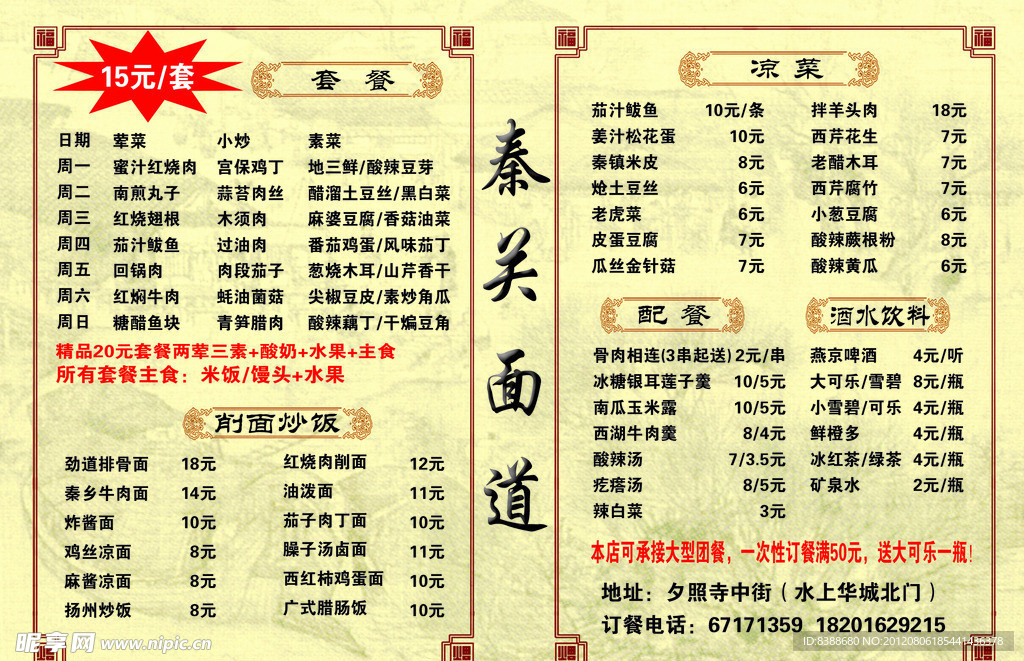 15元/套
套餐
日期 荤菜 小炒 素菜
周一 蜜汁红烧肉 宫保鸡丁 地三鲜/酸辣豆芽
周二 南煎丸子 蒜苔肉丝 醋溜土豆丝/黑白菜
周三 红烧翅根 木须肉 麻婆豆腐/香菇油菜
周四 茄汁鲅鱼 过油肉 番茄鸡蛋/风味茄丁
周五 回锅肉 肉段茄子 葱烧木耳/山芹香干
周六 红焖牛肉 蚝油菌菇 尖椒豆皮/素炒角瓜
周日 糖醋鱼块 青笋腊肉 酸辣藕丁/干煸豆角
精品20元套餐两荤三素+酸奶+水果+主食
所有套餐主食：米饭/馒头+水果
削面炒饭
劲道排骨面 18元 红烧肉削面 12元
秦乡牛肉面 14元 油泼面 11元
炸酱面 10元 茄子肉丁面 10元
鸡丝凉面 8元 臊子汤卤面 11元
麻酱凉面 8元 西红柿鸡蛋面 10元
扬州炒饭 8元 广式腊肠饭 10元
秦关面道
凉菜
茄汁鲅鱼 10元/条 拌羊头肉 18元
姜汁松花蛋 10元 西芹花生 7元
秦镇米皮 8元 老醋木耳 7元
炝土豆丝 6元 西芹腐竹 7元
老虎菜 6元 小葱豆腐 6元
皮蛋豆腐 7元 酸辣蕨根粉 8元
瓜丝金针菇 7元 酸辣黄瓜 6元
配餐 酒水饮料
骨肉相连(3串起送) 2元/串 燕京啤酒 4元/听
冰糖银耳莲子羹 10/5元 大可乐/雪碧 8元/瓶
南瓜玉米露 10/5元 小雪碧/可乐 4元/瓶
西湖牛肉羹 8/4元 鲜橙多 4元/瓶
酸辣汤 7/3.5元 冰红茶/绿茶 4元/瓶
疙瘩汤 8/5元 矿泉水 2元/瓶
辣白菜 3元
本店可承接大型团餐，一次性订餐满50元，送大可乐一瓶!
地址：夕照寺中街（水上华城北门）
订餐电话：67171359 18201629215
昵享网 www.nipic.cn
ID:8388680 NO:20120806185441436378